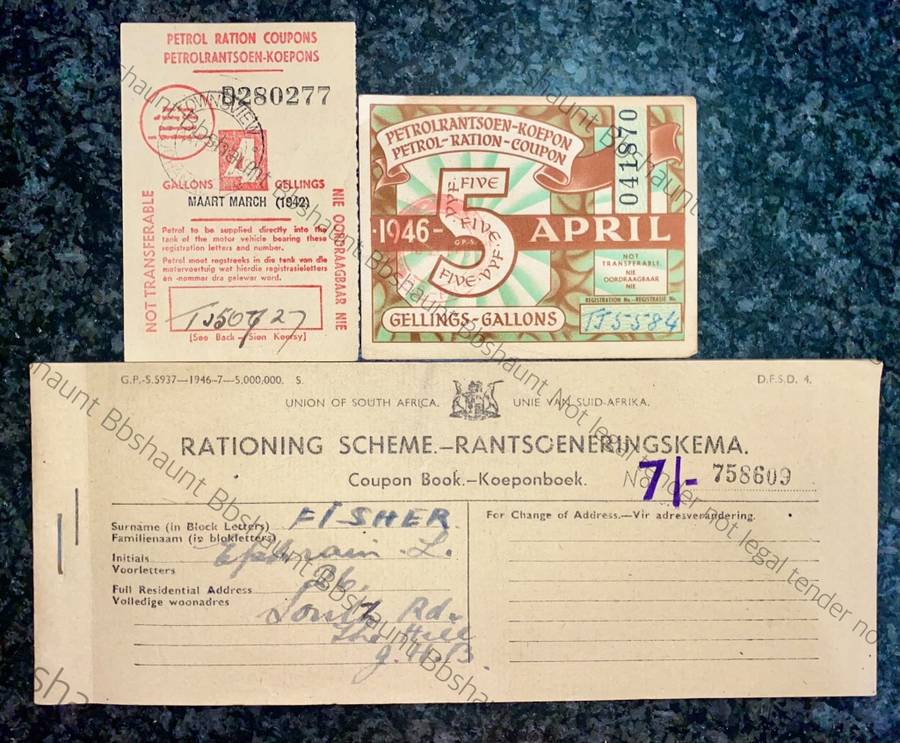 PETROL RATION COUPONS
PETROLRANTSOEN-KOEPONS
B280277
GALLONS GELLINGS
MAART MARCH (1942)
NOT TRANSFERABLE
NIE OORDRAAGBAAR NIE
Petrol to be supplied directly into the
tank of the motor vehicle bearing these
registration letters and number.
Petrol moet regstreeks in die tank van die
motorvoertuig wat hierdie registrasieletters
en -nommer dra gelewer word.
TJ50727
[See Back—Sien Keersy]
PETROLRANTSOEN-KOEPON
PETROL-RATION-COUPON
041870
5
VYF·FIVE
FIVE·VYF
1946-
G.P.-S.
APRIL
NOT
TRANSFERABLE
NIE
OORDRAAGBAAR
NIE
REGISTRATION No.-REGISTRASIE Nr.
TJ5584
GELLINGS-GALLONS
G.P.-S.5937—1946-7—5,000,000. S.
D.F.S.D. 4.
UNION OF SOUTH AFRICA. UNIE VAN SUID-AFRIKA.
RATIONING SCHEME.—RANTSOENERINGSKEMA.
Coupon Book.—Koeponboek.
No. 758609
7/-
Surname (in Block Letters) FISHER
Familienaam (in blokletters)
Initials Ephraim L.
Voorletters
Full Residential Address 26,
Volledige woonadres
South Rd.
The Hill
J.H.B.
For Change of Address.—Vir adresverandering.
Bbshaunt Not legal tender